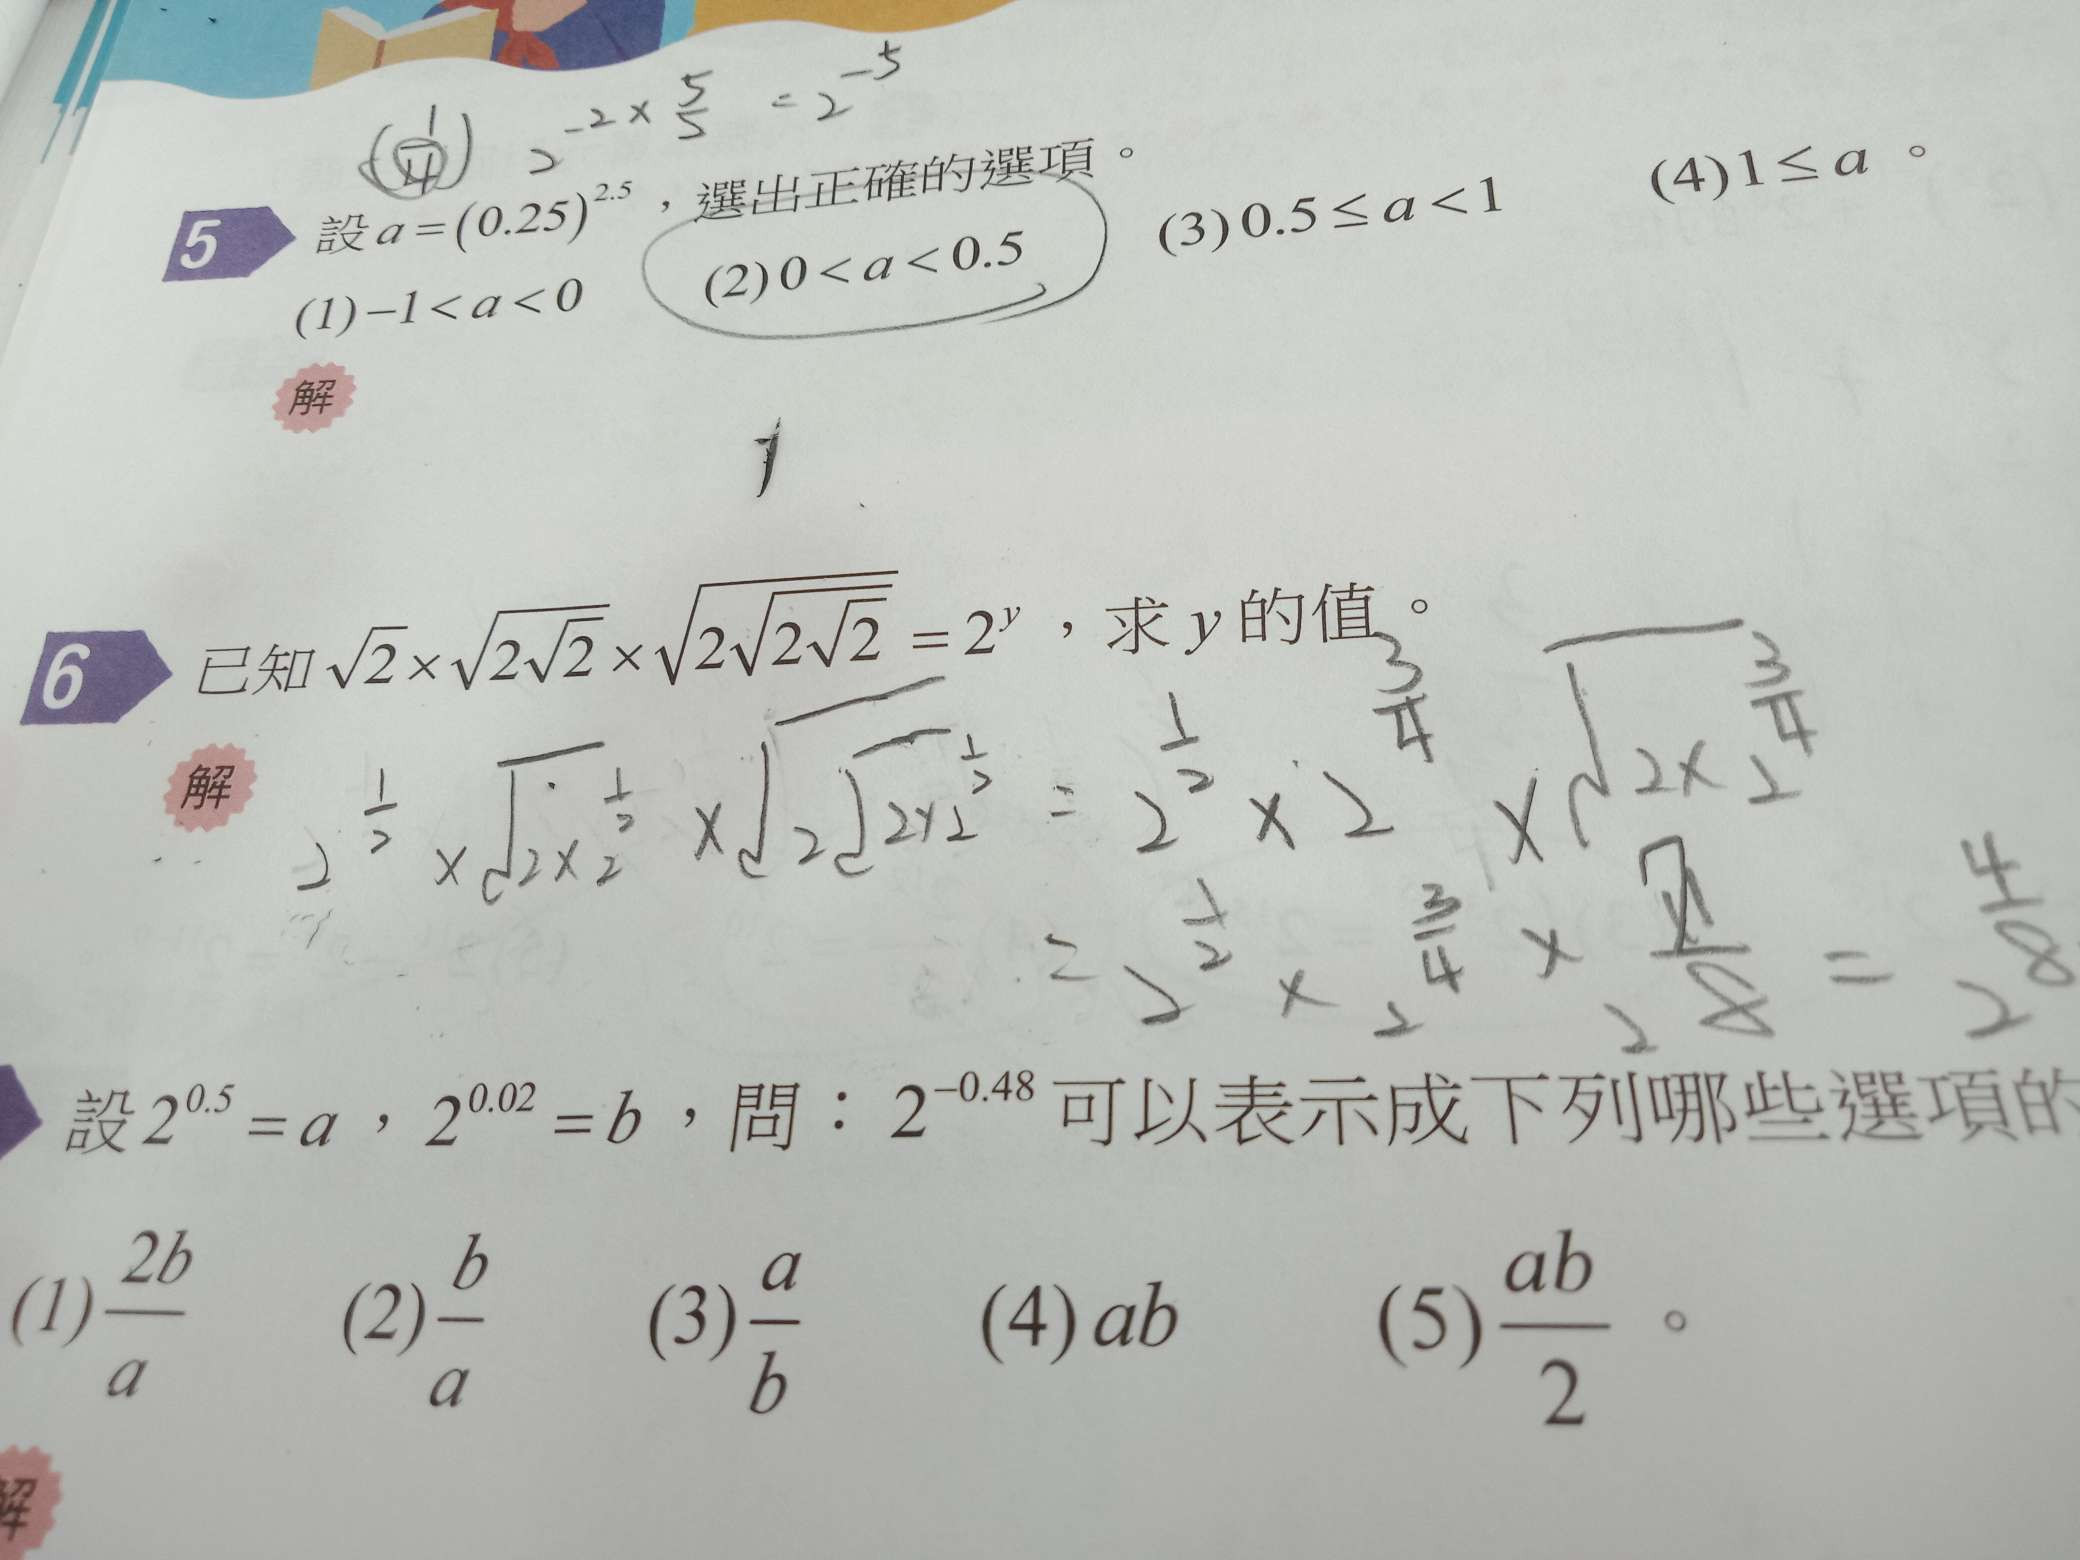 (1/4) 2^{-2×5/5} = 2^{-5}
5 設 a = (0.25)^{2.5}，選出正確的選項。
(1) −1 < a < 0 (2) 0 < a < 0.5 (3) 0.5 ≤ a < 1 (4) 1 ≤ a。
解
6 已知 √2 × √(2√2) × √(2√(2√2)) = 2^y，求 y 的值。
解 2^{1/2} × √(2×2^{1/2}) × √(2√(2×2^{1/2})) = 2^{1/2} × 2^{3/4} × √(2×2^{3/4})
= 2^{1/2} × 2^{3/4} × 2^{7/8} = 2^{4/8}
設 2^{0.5} = a，2^{0.02} = b，問：2^{−0.48} 可以表示成下列哪些選項的
(1) 2b/a (2) b/a (3) a/b (4) ab (5) ab/2。
解